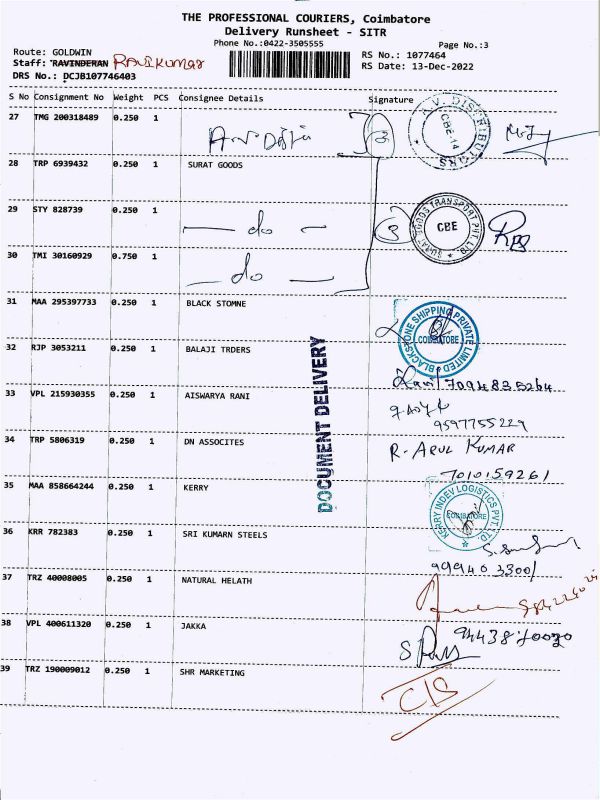 THE PROFESSIONAL COURIERS, Coimbatore
Delivery Runsheet - SITR
Phone No.:0422-3505555 Page No.:3
Route: GOLDWIN RS No.: 1077464
Staff: RAVINDERAN RAVIKUMAR RS Date: 13-Dec-2022
DRS No.: DCJB107746403
S No Consignment No Weight PCS Consignee Details Signature
27 TMG 200318489 0.250 1 3 A.V. DISTRIBUTARS CBE-14
28 TRP 6939432 0.250 1 SURAT GOODS
29 STY 828739 0.250 1 — do — 3 SURAT GOODS TRANSPORT PVT. LTD. CBE
30 TMI 30160929 0.750 1 — do —
31 MAA 295397733 0.250 1 BLACK STOMNE BLACKSTONE SHIPPING PRIVATE LIMITED COIMBATORE
32 RJP 3053211 0.250 1 BALAJI TRDERS
Ravi 7094835264
33 VPL 215930355 0.250 1 AISWARYA RANI
9597755229
34 TRP 5806319 0.250 1 DN ASSOCITES R. ARUL KUMAR
7010159261
35 MAA 858664244 0.250 1 KERRY KERRY INDEV LOGISTICS PVT. LTD. COIMBATORE
36 KRR 782383 0.250 1 SRI KUMARN STEELS
9994033001
37 TRZ 40008005 0.250 1 NATURAL HELATH
38 VPL 400611320 0.250 1 JAKKA
39 TRZ 190009012 0.250 1 SHR MARKETING
C/S
DOCUMENT DELIVERY